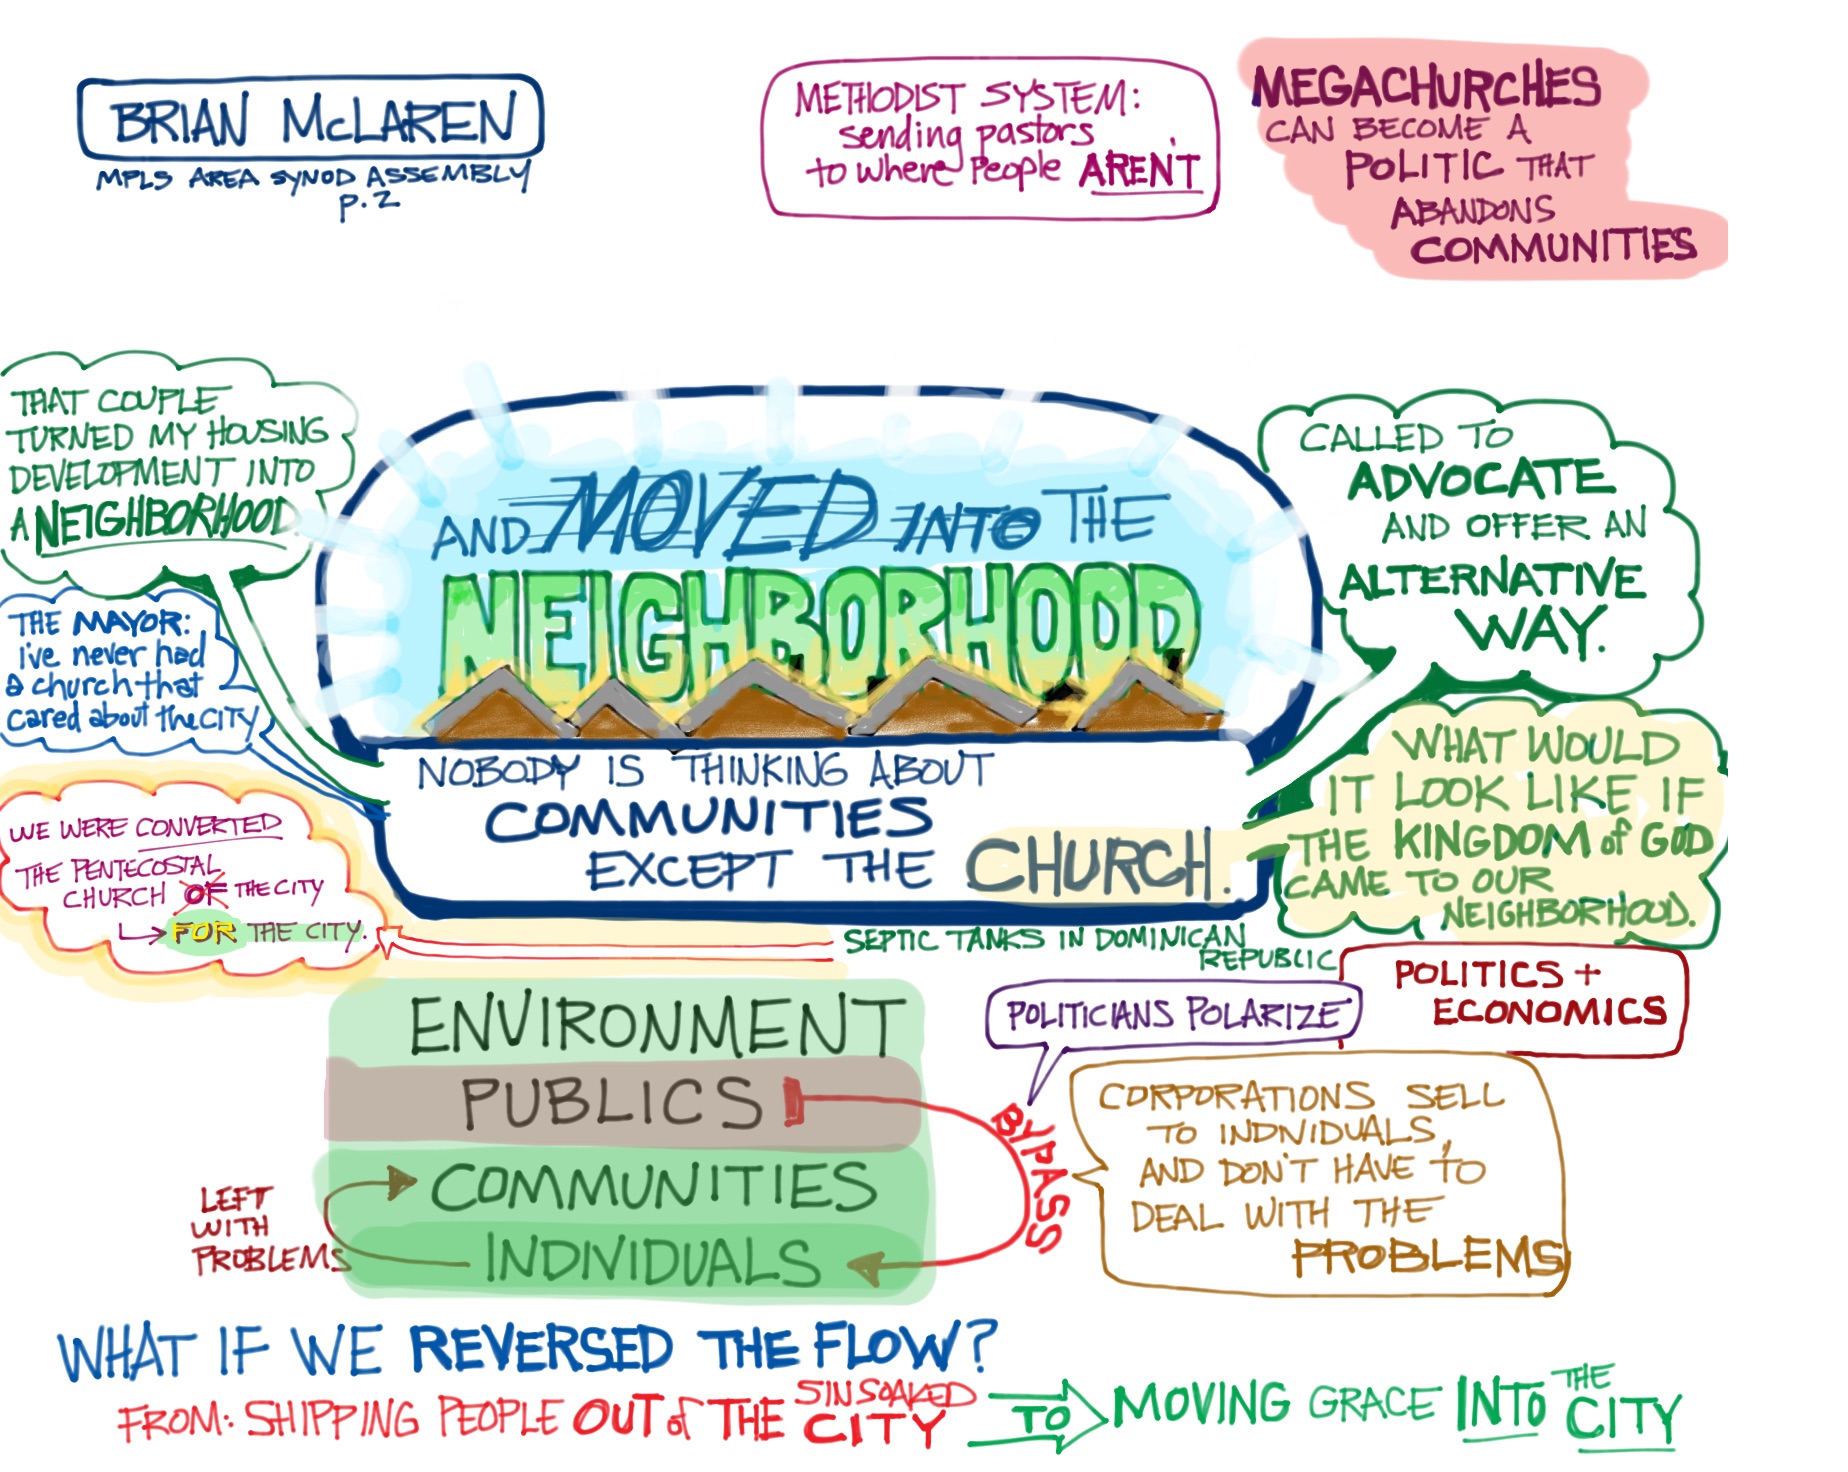 BRIAN McLAREN
MPLS AREA SYNOD ASSEMBLY
p.2
METHODIST SYSTEM:
sending pastors
to where People AREN'T
MEGACHURCHES
CAN BECOME A
POLITIC THAT
ABANDONS
COMMUNITIES
THAT COUPLE
TURNED MY HOUSING
DEVELOPMENT INTO
A NEIGHBORHOOD.
THE MAYOR:
I've never had
a church that
cared about the CITY
WE WERE CONVERTED
THE PENTECOSTAL
CHURCH OF THE CITY
FOR THE CITY.
AND MOVED INTO THE
NEIGHBORHOOD
NOBODY IS THINKING ABOUT
COMMUNITIES
EXCEPT THE CHURCH.
CALLED TO
ADVOCATE
AND OFFER AN
ALTERNATIVE
WAY.
WHAT WOULD
IT LOOK LIKE IF
THE KINGDOM of GOD
CAME TO OUR
NEIGHBORHOOD.
SEPTIC TANKS IN DOMINICAN
REPUBLIC
POLITICS +
ECONOMICS
POLITICIANS POLARIZE
ENVIRONMENT
PUBLICS
COMMUNITIES
INDIVIDUALS
LEFT
WITH
PROBLEMS
BYPASS
CORPORATIONS SELL
TO INDIVIDUALS,
AND DON'T HAVE TO
DEAL WITH THE
PROBLEMS
WHAT IF WE REVERSED THE FLOW?
FROM: SHIPPING PEOPLE OUT of THE SINSOAKED CITY
TO
MOVING GRACE INTO THE CITY